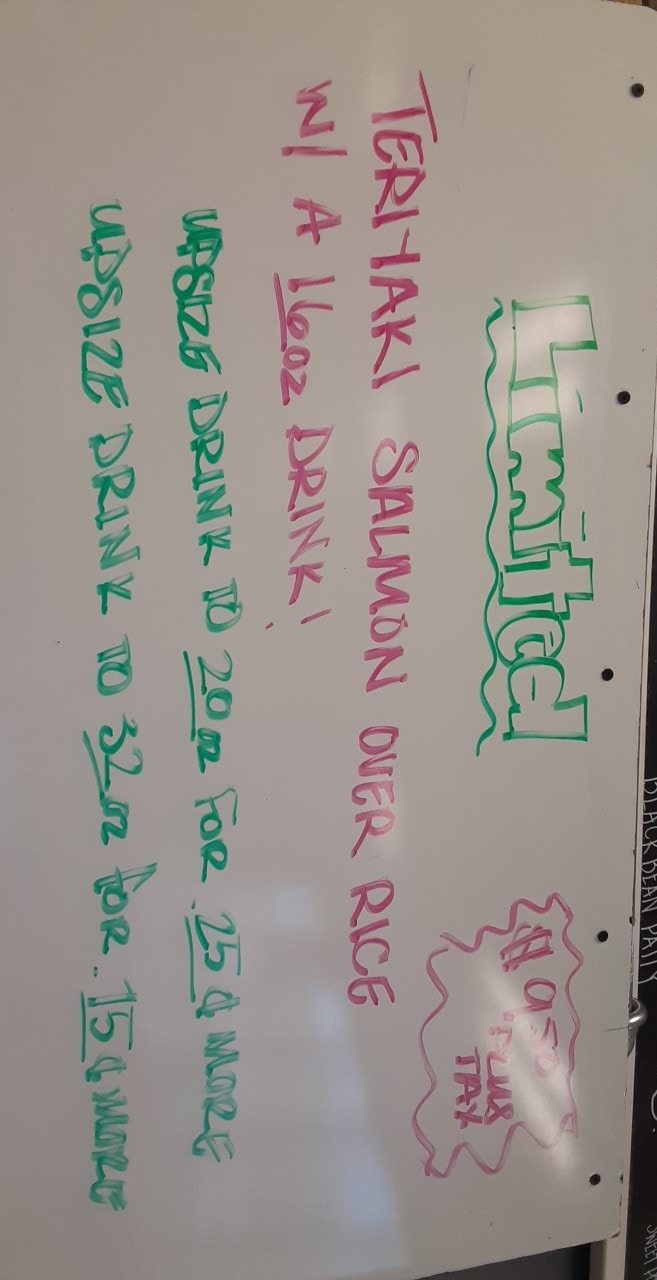 Limited
$9.50
PLUS
TAX
TERIYAKI SALMON OVER RICE
W/ A 16oz DRINK!
UPSIZE DRINK TO 20oz FOR .25¢ MORE
UPSIZE DRINK TO 32oz FOR .15¢ MORE
BLACK BEAN PATTY